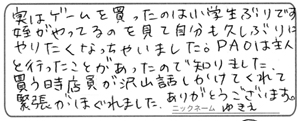 実はゲームを買ったのはい学生ぶりです
姪がやってるのを見て自分も久しぶりに
やりたくなっちゃいました。PAOは主人
と行ったことがあったので知りました。
買う時店員が沢山話しかけてくれて
緊張がほぐれました。ありがとうございます。
ニックネーム ゆきえ